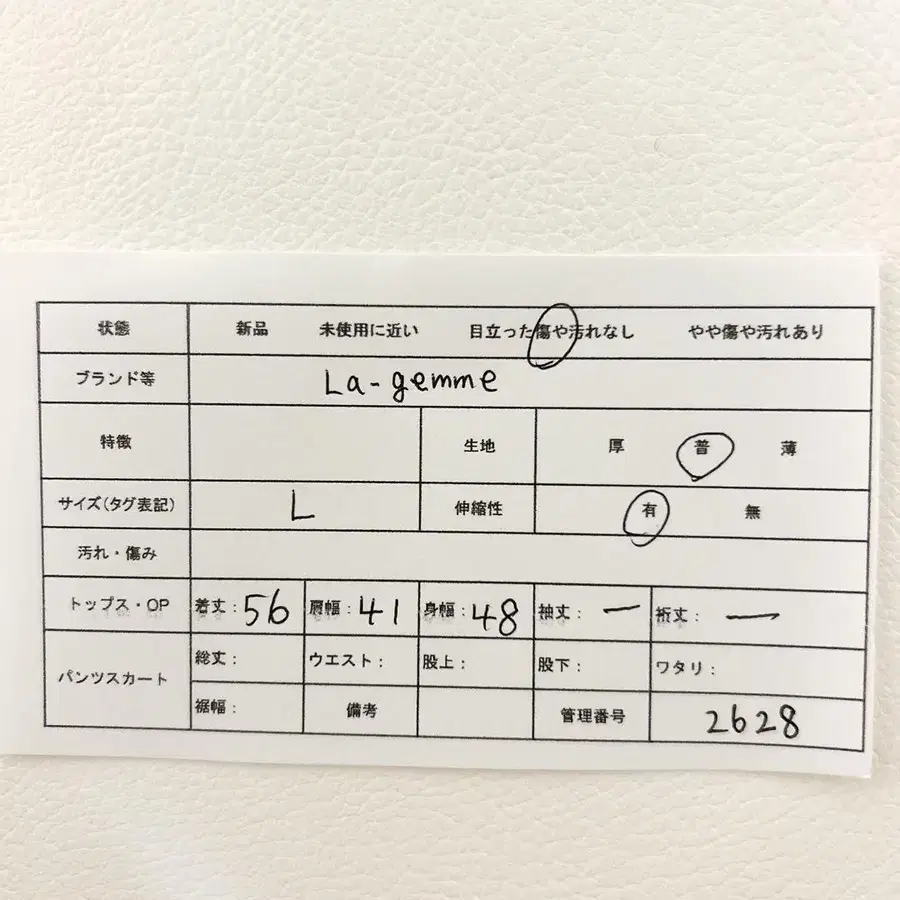 状態 新品 未使用に近い 目立った傷や汚れなし やや傷や汚れあり
ブランド等 La-gemme
特徴 生地 厚 普 薄
サイズ(タグ表記) L 伸縮性 有 無
汚れ・傷み
トップス・OP 着丈：56 肩幅：41 身幅：48 袖丈：ー 裄丈：ー
パンツスカート 総丈： ウエスト： 股上： 股下： ワタリ：
裾幅： 備考 管理番号 2628